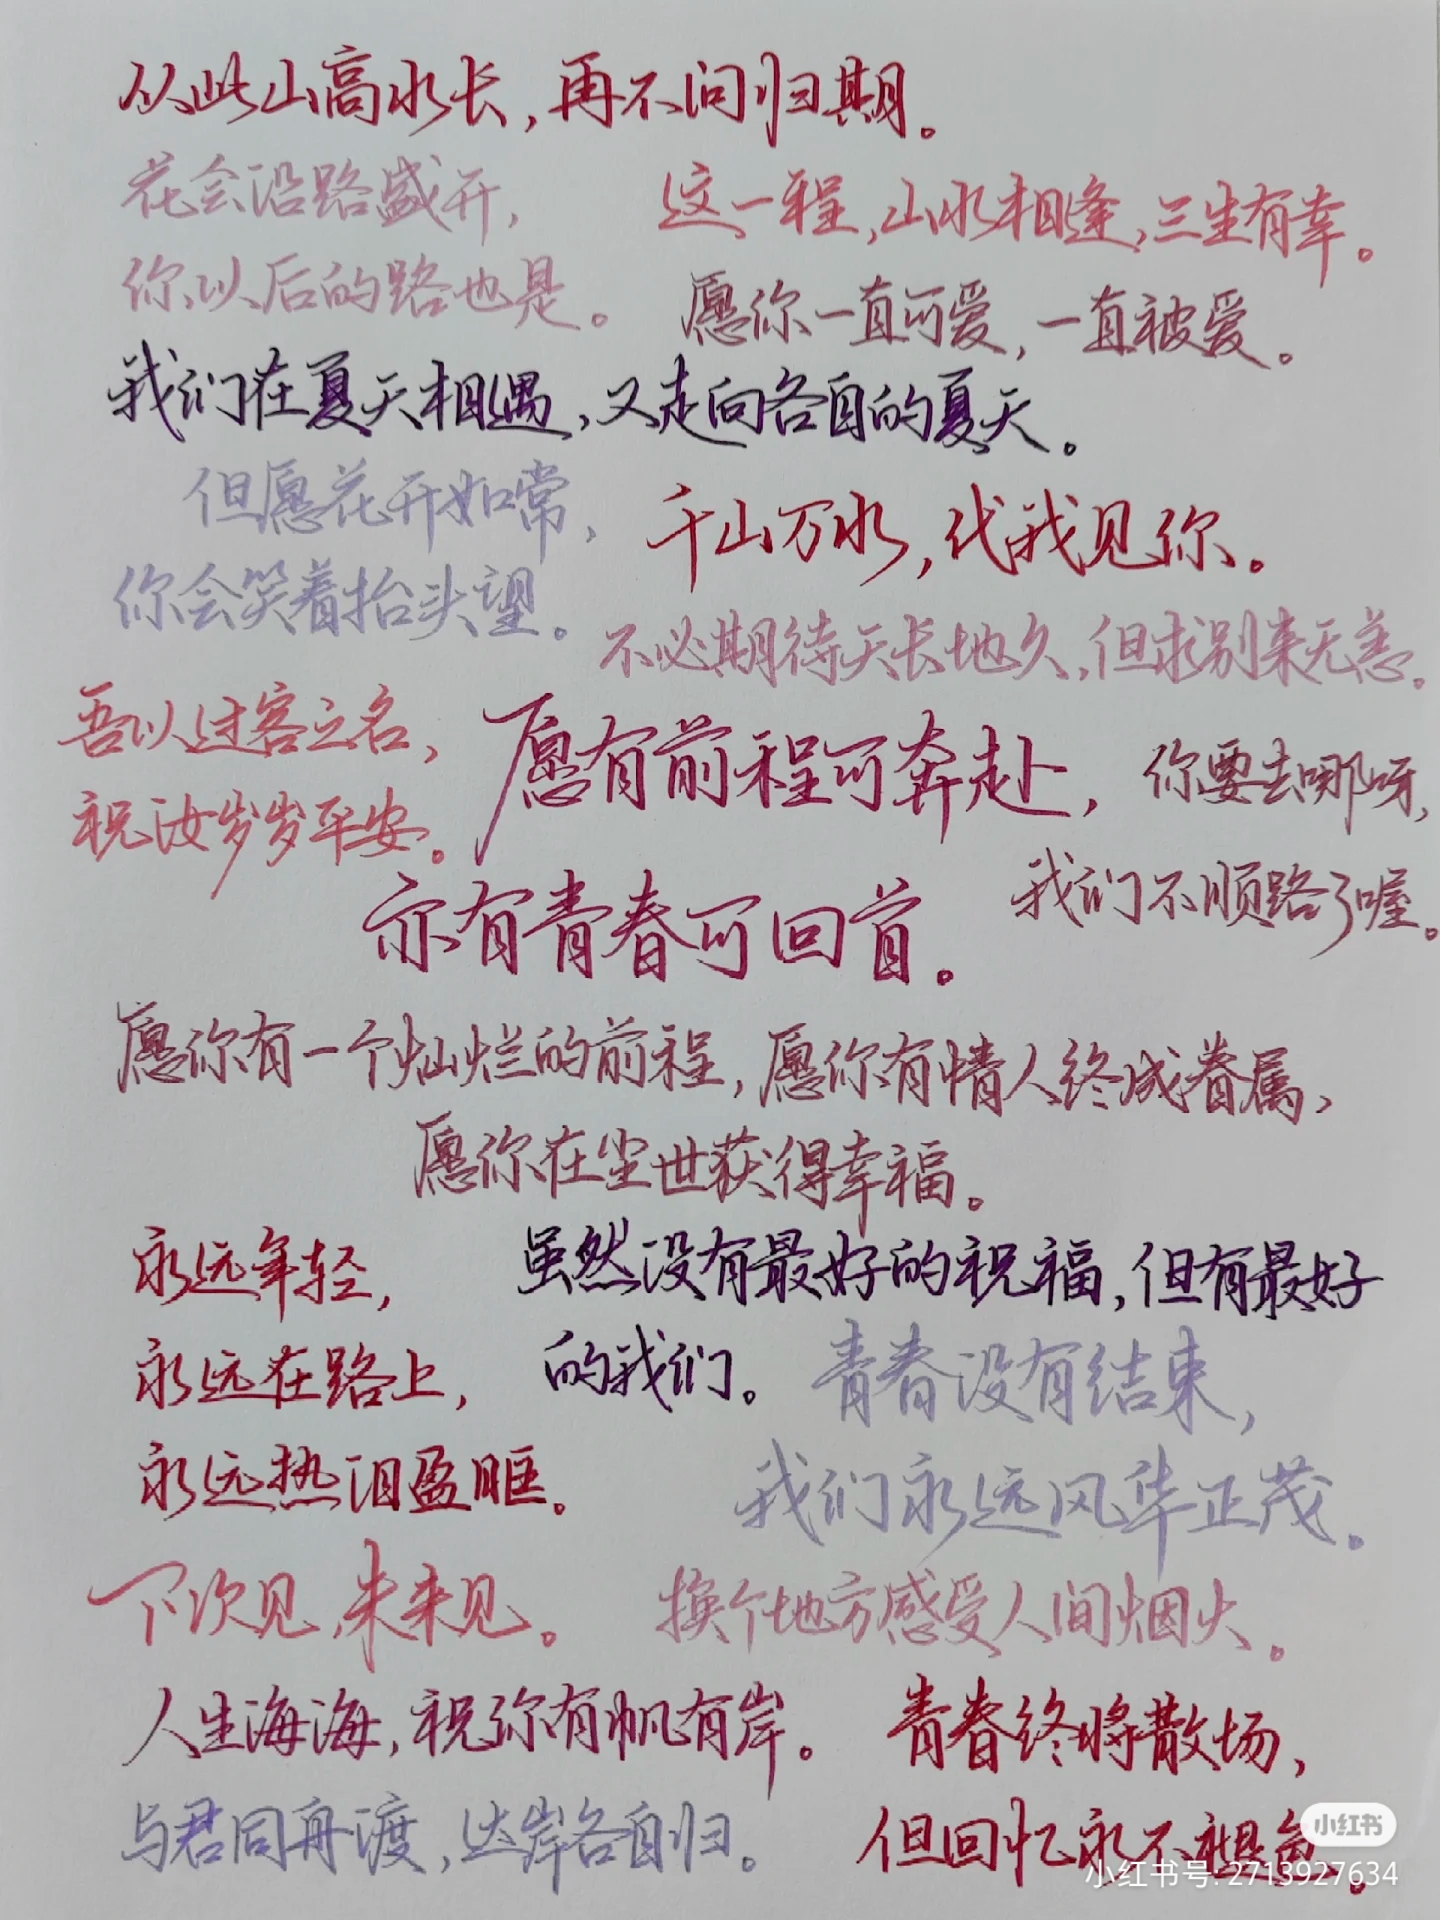 从此山高水长，再不问归期。
花会沿路盛开，
你以后的路也是。
这一程，山水相逢，三生有幸。
愿你一直可爱，一直被爱。
我们在夏天相遇，又走向各自的夏天。
但愿花开如常，
你会笑着抬头望。
千山万水，代我见你。
不必期待天长地久，但求别来无恙。
吾以过客之名，
祝汝岁岁平安。
愿有前程可奔赴，
亦有青春可回首。
你要去哪呀，
我们不顺路了喔。
愿你有一个灿烂的前程，愿你有情人终成眷属，
愿你在尘世获得幸福。
永远年轻，
永远在路上，
永远热泪盈眶。
虽然没有最好的祝福，但有最好
的我们。
青春没有结束，
我们永远风华正茂。
下次见，未来见。
换个地方感受人间烟火。
人生海海，祝你有帆有岸。
与君同舟渡，达岸各自归。
青春终将散场，
但回忆永不褪色。
小红书
小红书号: 2713927634